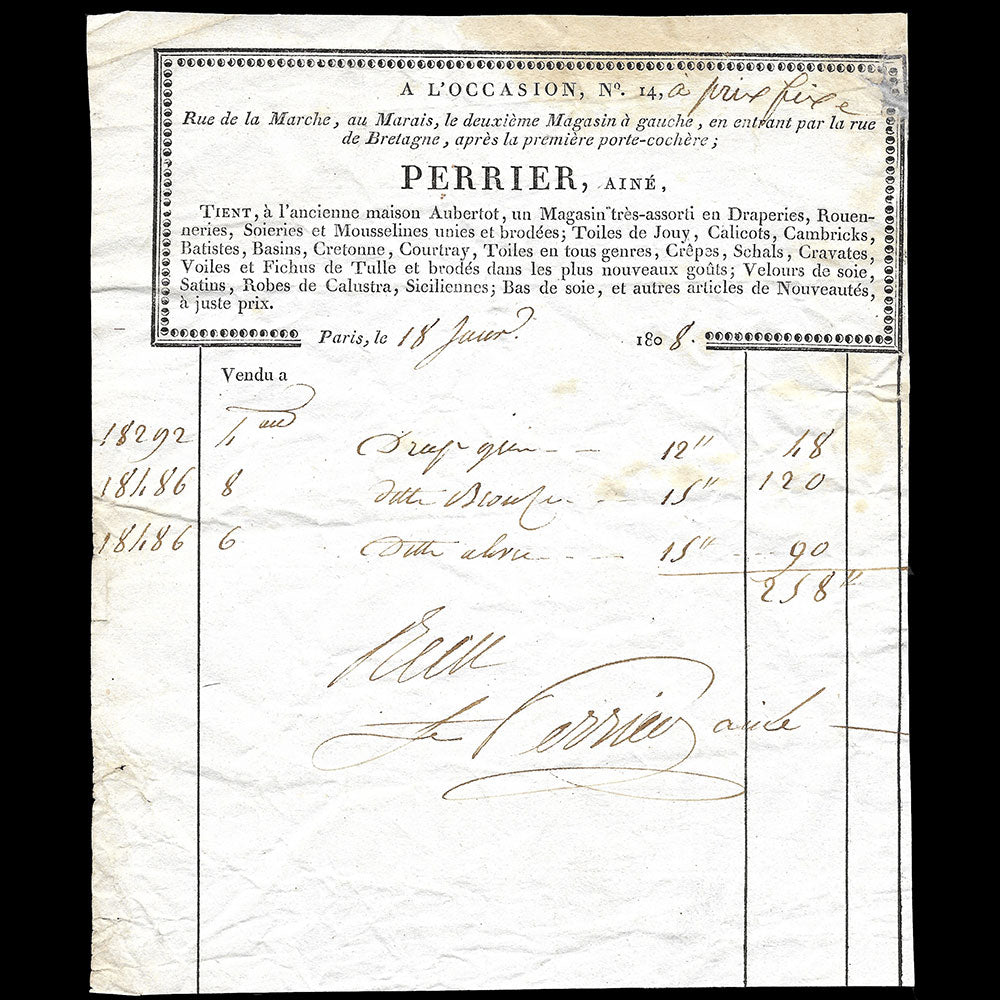 A L'OCCASION, Nº. 14, à prix fixe
Rue de la Marche, au Marais, le deuxième Magasin à gauche, en entrant par la rue
de Bretagne, après la première porte-cochère;
PERRIER, AINÉ,
TIENT, à l'ancienne maison Aubertot, un Magasin très-assorti en Draperies, Rouen-
neries, Soieries et Mousselines unies et brodées; Toiles de Jouy, Calicots, Cambricks,
Batistes, Basins, Cretonne, Courtray, Toiles en tous genres, Crêpes, Schals, Cravates,
Voiles et Fichus de Tulle et brodés dans les plus nouveaux goûts; Velours de soie,
Satins, Robes de Calustra, Siciliennes; Bas de soie, et autres articles de Nouveautés,
à juste prix.
Paris, le 18 Janv. 1808.
Vendu a
18292 4 Drap 12" 48
18486 8 ditto 15" 120
18486 6 Ditto 15" 90
258"
Perrier ainé